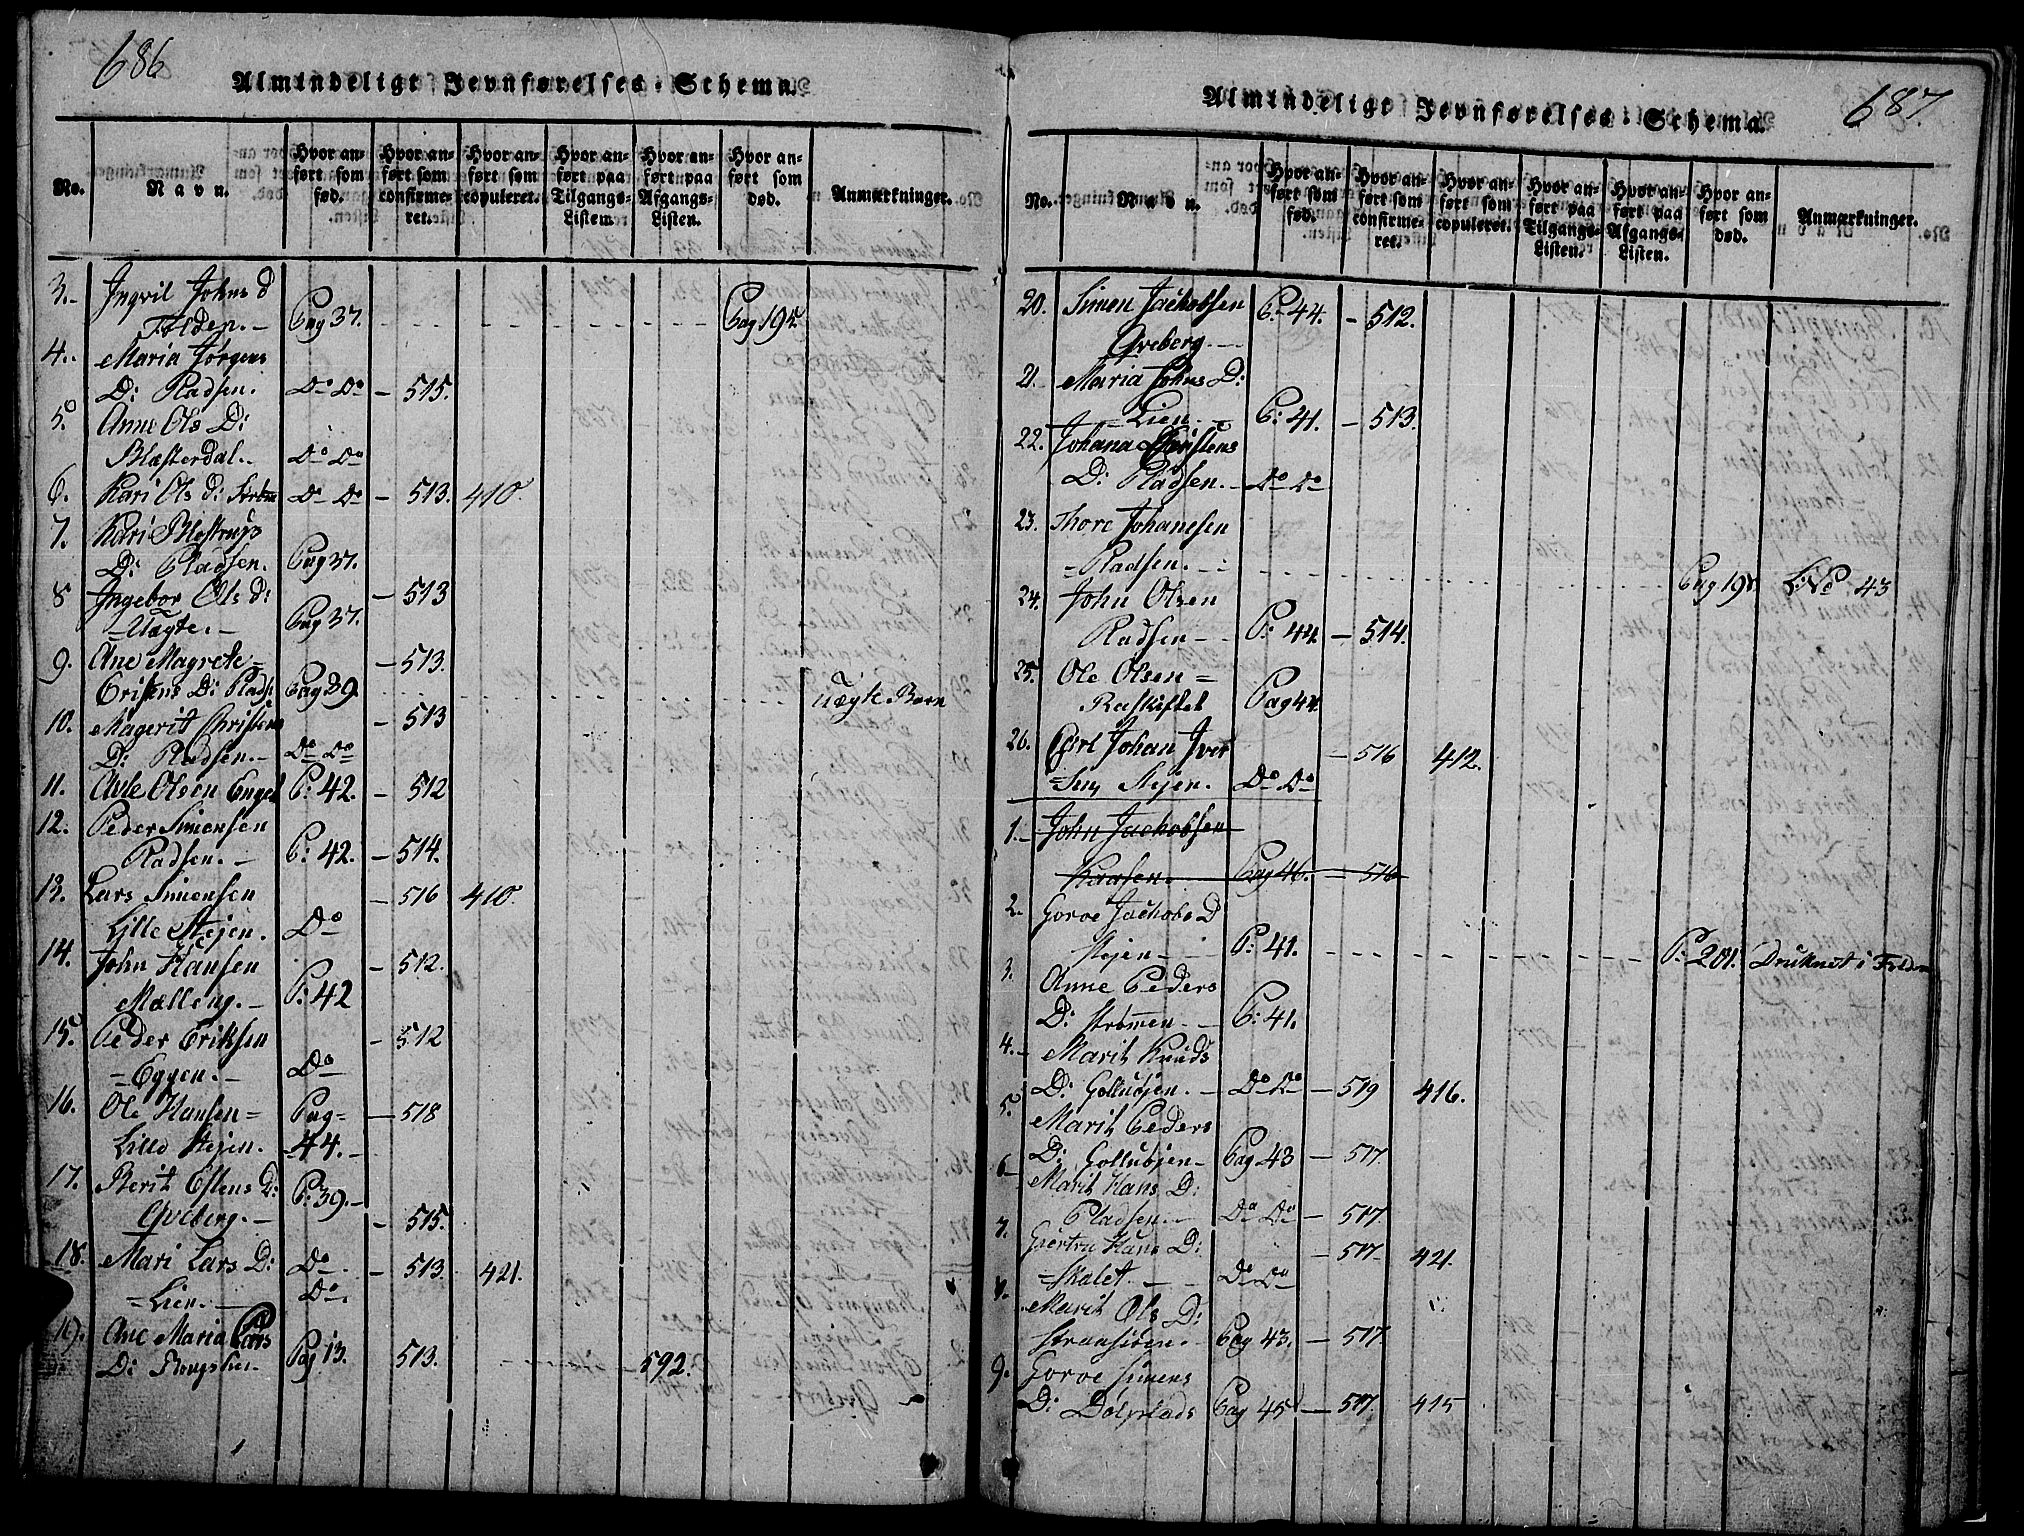 686
Almindeligt Jevnførelses-Schema.
No. Navn. Hvor anført som fød. Hvor anført som confirmeret. Hvor anført som copuleret. Hvor anført paa Tilgangs-Listen. Hvor anført paa Afgangs-Listen. Hvor anført som død. Anmærkninger.
3. Ingvil Johns d
Folden. Pag 37. Pag 195.
4. Maria Jörgens
D: Pladsen. Do Do 515.
5. Anne Ols D:
Blæsterdal. Do Do
6. Kari Ols d: Do Do 513. 410.
7. Kari
D: Pladsen. Pag 37.
8 Ingebor Ols d: 513
Uægte. Pag 37.
9. Ane Magrete 513.
Cristens D: Plads: Pag 39. Uægte Barn
10. Magerit Christens 513
D: Pladsen. Do Do
11. Olsen Enget P: 42. 512
12. Peder Simensen
Pladsen. P: 42. 514.
13. Lars Simensen 516 410.
Lille Stejen. Do
14. John Hansen 512.
Mælleng. P: 42
15. Peder Eriksen 512
Eggen. Do
16. Ole Hansen Pag 518
Lille Stejen. 44.
17. Berit Estens D: P: 39.
Qveberg. 515.
18. Mari Lars D: Do 513. 421.
Lien. Do.
19. Ane Maria Lars
D: Pag 13. 513. 592.
687.
Almindeligt Jevnførelses-Schema.
No. Navn. Hvor anført som fød. Hvor anført som confirmeret. Hvor anført som copuleret. Hvor anført paa Tilgangs-Listen. Hvor anført paa Afgangs-Listen. Hvor anført som død. Anmærkninger.
20. Simen Jachobsen P: 44. 512.
Qveberg.
21. Maria Johns D:
Lien. P: 41. 513.
22. Johana Christens
D: Pladsen. Do Do
23. Thore Johanesen
Pladsen. Pag 198 No 43
24. John Olsen
Pladsen P: 44. 514.
25. Ole Olsen
Raskiftet Pag 44.
26. Carl Johan Iver 516 412.
sen Stejen. Do Do
1. John Jachobsen
Kaasen. Pag 46. 516
2. Goroe Jachobs D
Stejen P: 41. P: 201. Druknet i Folden
3. Anne Peders
D: Strømen. P: 41.
4. Marit Knuds
D: Gollusjen. Do Do 519 416.
5. Marit Peders
D: Gollusjen Pag 43 517.
6 Marit Hans D:
Pladsen. Do Do 517.
7. Gjertru Hans D: 517 421.
Molet. Do Do
8. Marit Ols D:
Straasöien. Pag 43. 517.
9. Goroe Simens
D: Dölplads Pag 45 517. 415